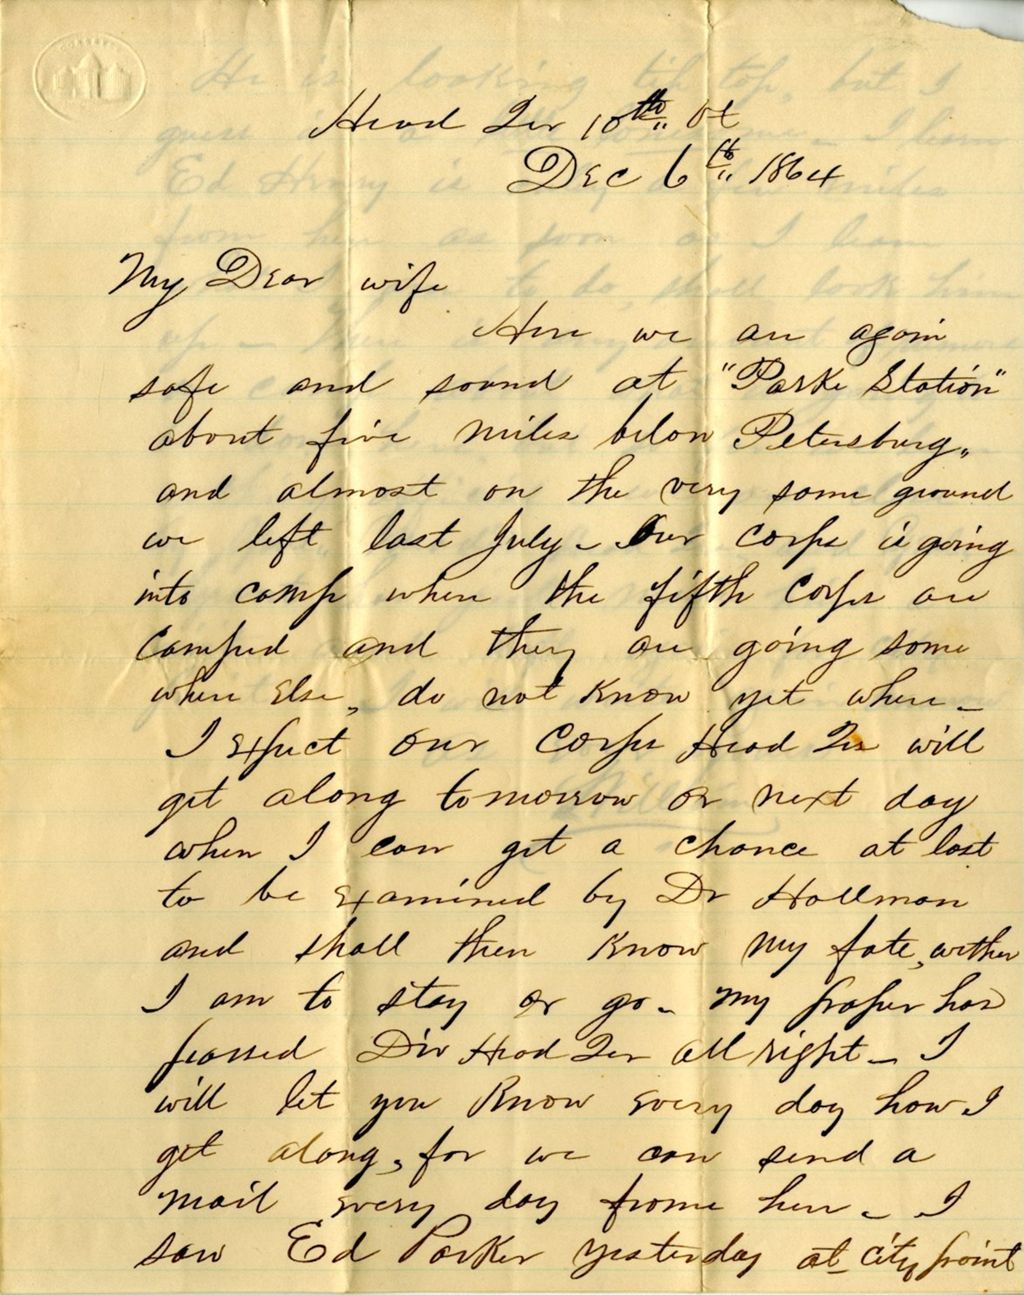 Head Qrs 10th Vt
Dec 6th 1864
My Dear wife
Here we are again
safe and sound at "Parke Station"
about five miles below Petersburg,
and almost on the very same ground
we left last July - Our corps is going
into camp where the fifth Corps are
camped and they are going some
where Else, do not Know yet where -
I Expect our Corps Head Qrs will
get along tomorrow or next day
when I can get a chance at last
to be Examined by Dr Hollman
and shall then Know my fate, wether
I am to stay or go - my paper has
passed Div Head Qrs all right - I
will let you Know Every day how I
get along, for we can send a
mail Every day frome here - I
saw Ed Parker yesterday at city point